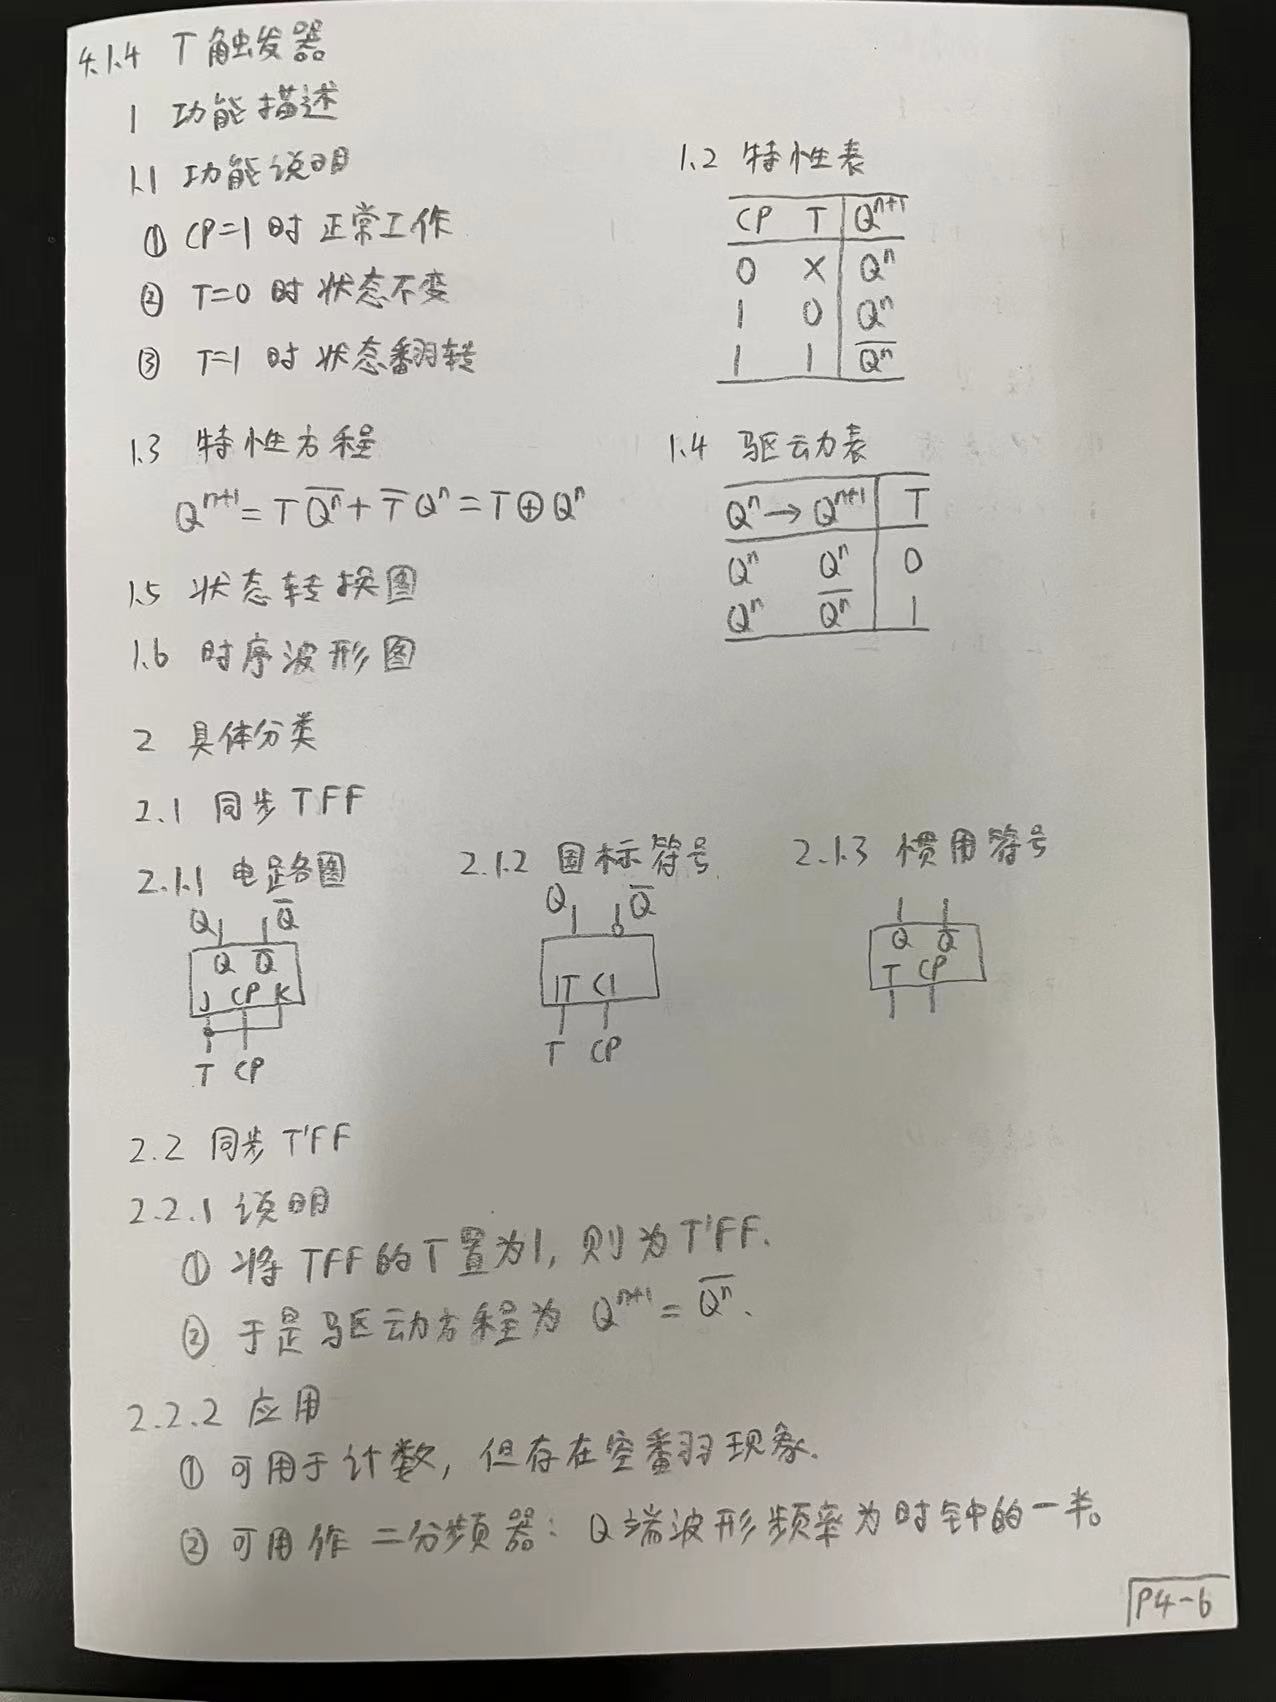 4.1.4 T触发器
1 功能描述
1.1 功能说明
① CP=1时 正常工作
② T=0时 状态不变
③ T=1时 状态翻转
1.2 特性表
CP T Qⁿ⁺¹
0 × Qⁿ
1 0 Qⁿ
1 1 Q̅ⁿ
1.3 特性方程
Qⁿ⁺¹ = T Q̅ⁿ + T̅ Qⁿ = T⊕Qⁿ
1.4 驱动表
Qⁿ → Qⁿ⁺¹ T
Qⁿ Qⁿ 0
Qⁿ Q̅ⁿ 1
1.5 状态转换图
1.6 时序波形图
2 具体分类
2.1 同步TFF
2.1.1 电路图
Q Q̅
Q Q̅
J CP K
T CP
2.1.2 国标符号
Q Q̅
1T C1
T CP
2.1.3 惯用符号
Q Q̅
T CP
2.2 同步T'FF
2.2.1 说明
① 将TFF的T置为1, 则为T'FF.
② 于是驱动方程为 Qⁿ⁺¹ = Q̅ⁿ.
2.2.2 应用
① 可用于计数, 但存在空翻现象.
② 可用作二分频器: Q端波形频率为时钟的一半。
P4-6